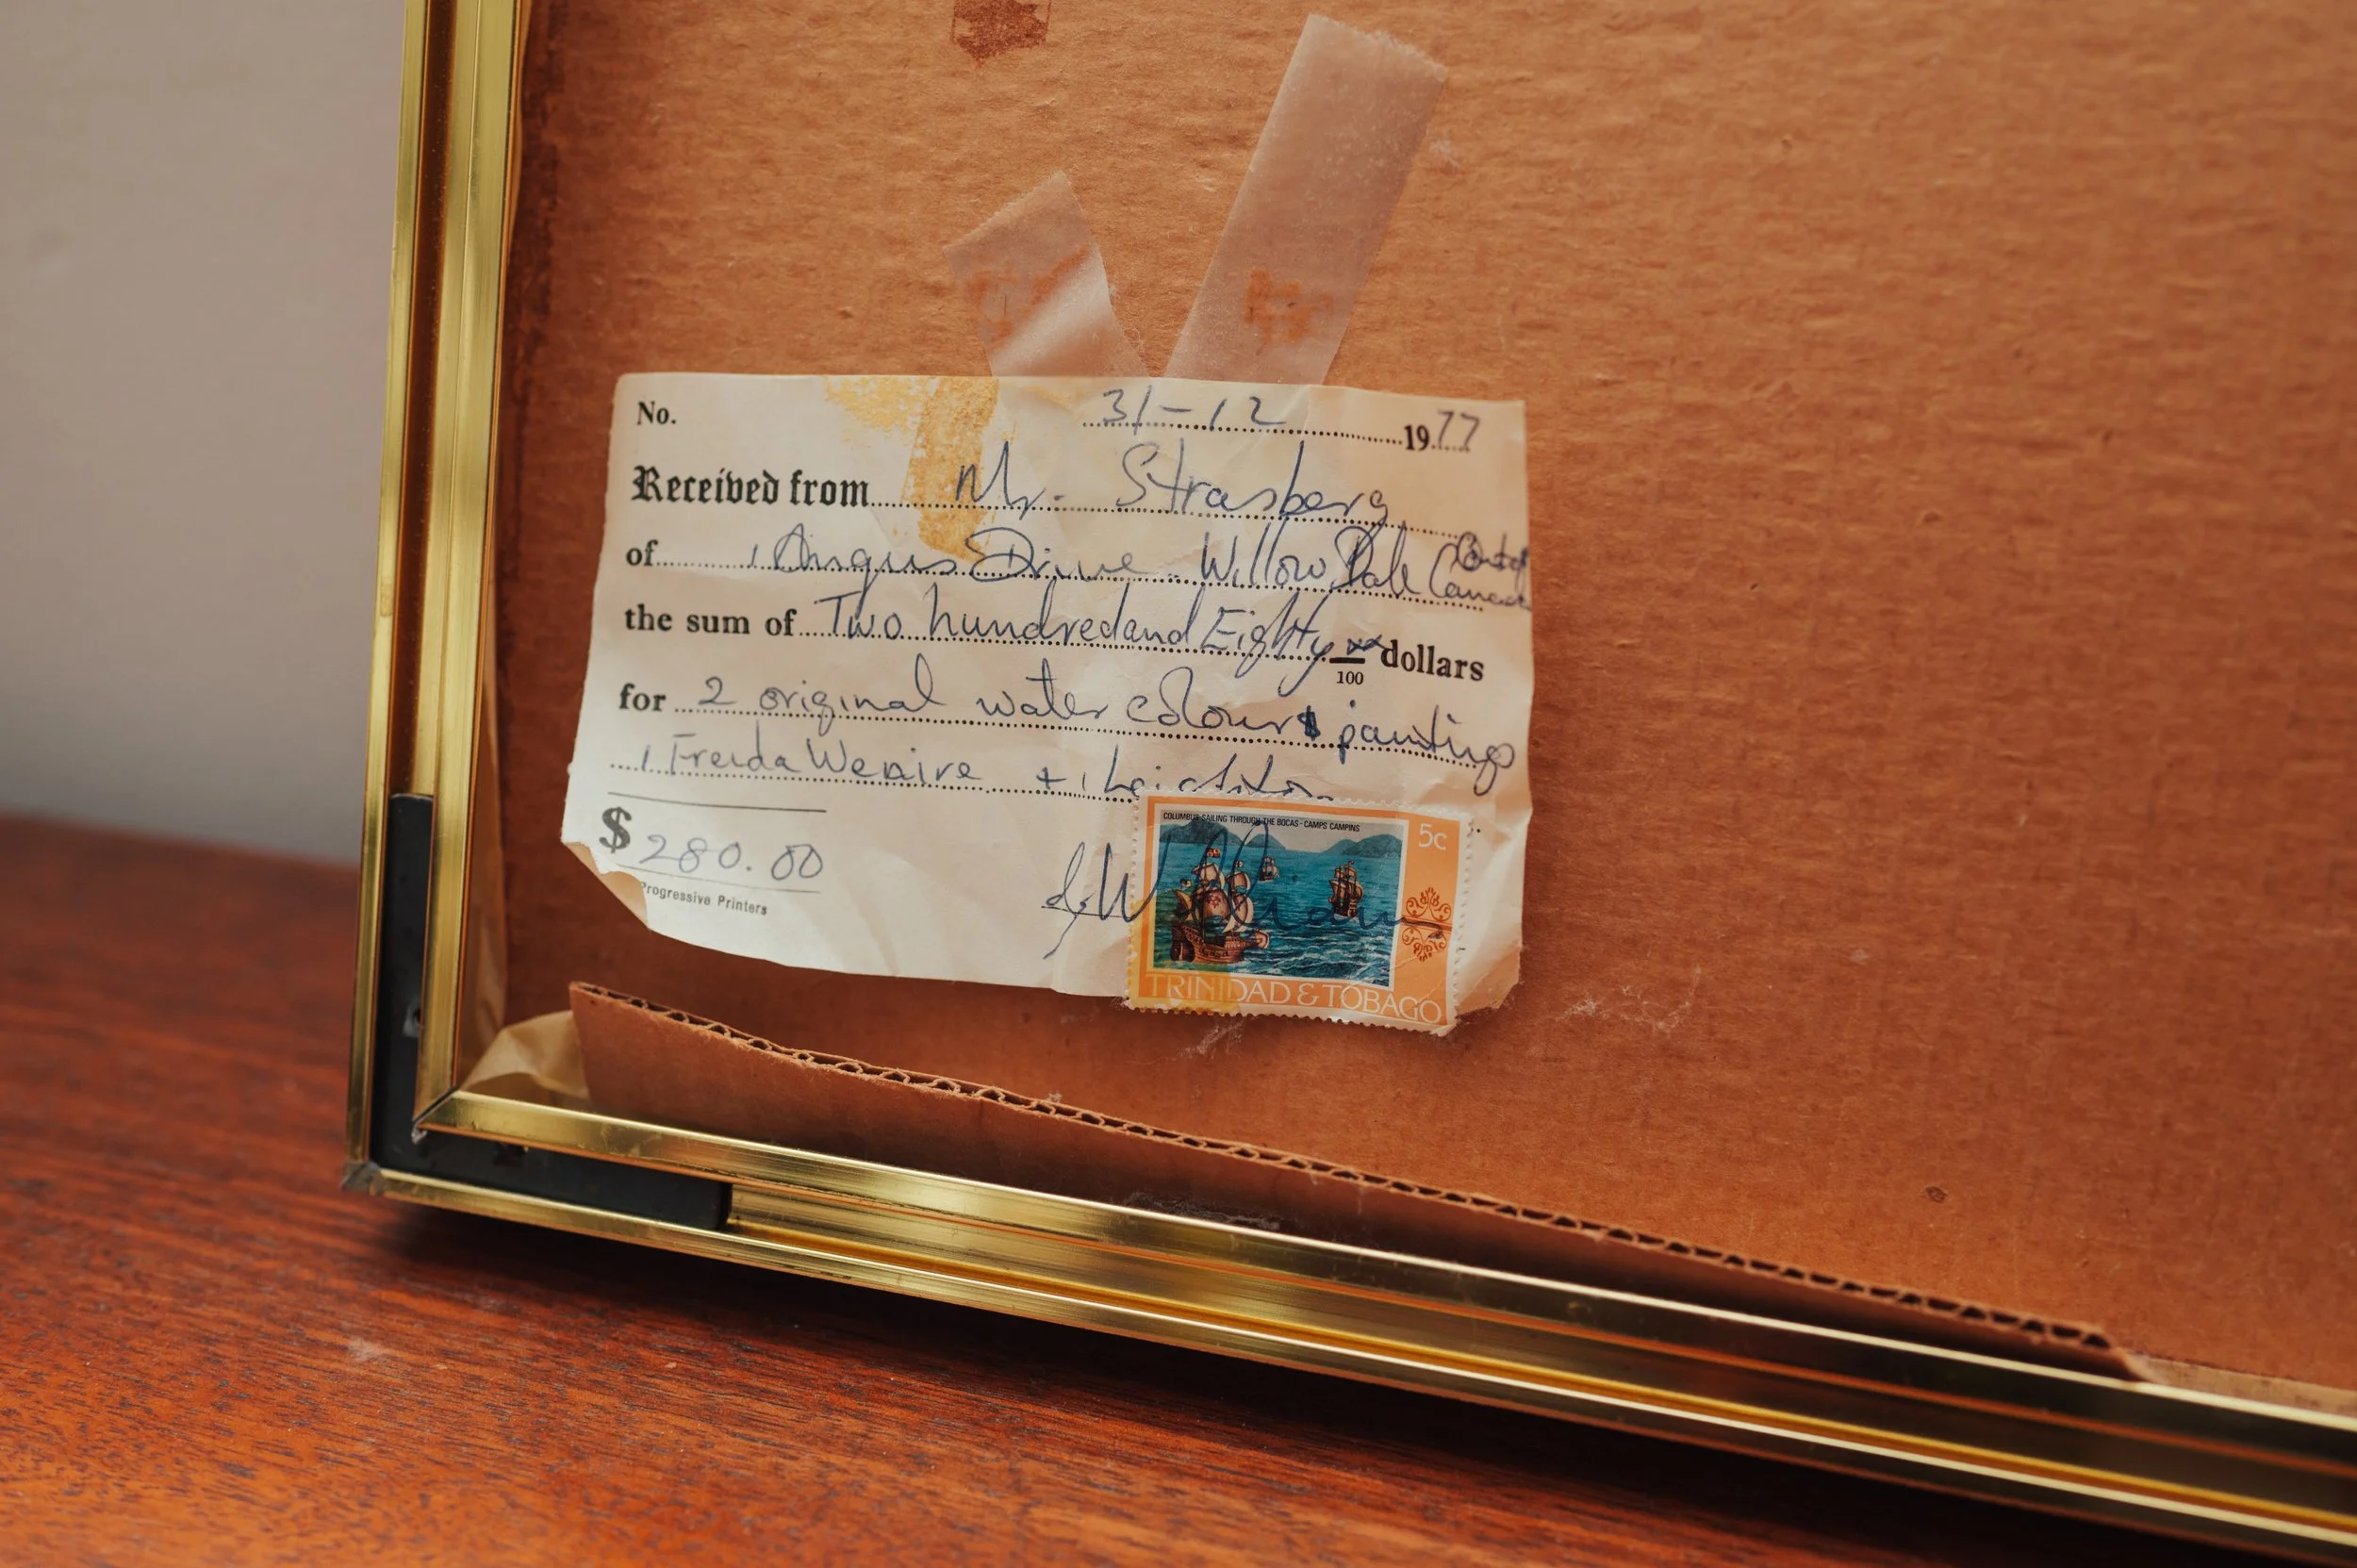 No. 31-12 1977
Received from Mr. Strasberg
of 1 Angus Drive Willow Dale Ont
Canada
the sum of Two hundred and Eighty xx/100 dollars
for 2 original water colours paintings
1 Freida Wenire + 1 Leighton
$ 280.00
Progressive Printers
Williams
COLUMBUS SAILING THROUGH THE BOCAS - CAMPS CAMPINS
5c
TRINIDAD & TOBAGO